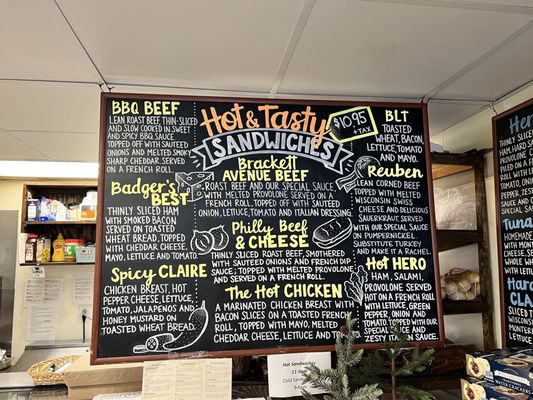 BBQ BEEF
LEAN ROAST BEEF THIN SLICED
AND SLOW COOKED IN SWEET
AND SPICY BBQ SAUCE.
TOPPED OFF WITH SAUTEED
ONIONS AND SMOKY
SHARP CHEDDAR. SERVED
ON A FRENCH ROLL.
Badger's
BEST
THINLY SLICED HAM
WITH SMOKED BACON
SERVED ON TOASTED
WHEAT BREAD, TOPPED
WITH CHEDDAR CHEESE,
MAYO, LETTUCE AND TOMATO.
Spicy CLAIRE
CHICKEN BREAST, HOT
PEPPER CHEESE, LETTUCE,
TOMATO, JALAPENOS AND
HONEY MUSTARD ON
TOASTED WHEAT BREAD.
HOT & TASTY
SANDWICHES
$10.95
+TAX
Brackett
AVENUE BEEF
ROAST BEEF AND OUR SPECIAL SAUCE
WITH MELTED PROVOLONE SERVED ON A
FRENCH ROLL. TOPPED OFF WITH SAUTÉED
ONION, LETTUCE, TOMATO AND ITALIAN DRESSING
Philly Beef
& CHEESE
THINLY SLICED ROAST BEEF, SMOTHERED
WITH SAUTEED ONIONS AND FRENCH DIP
SAUCE; TOPPED WITH MELTED PROVOLONE
ON A FRENCH ROLL.
The Hot CHICKEN
A MARINATED CHICKEN BREAST WITH
BACON SLICES ON A TOASTED FRENCH
ROLL, TOPPED WITH MAYO, MELTED
CHEDDAR CHEESE, LETTUCE AND TOMATO.
BLT
TOASTED
WHEAT, BACON,
LETTUCE, TOMATO
AND MAYO.
Reuben
LEAN CORNED BEEF
TOPPED WITH MELTED
WISCONSIN SWISS
CHEESE AND DELICIOUS
SAUERKRAUT. SERVED
ON PUMPERNICKEL.
SUBSTITUTE TURKEY
AND MAKE IT A RACHEL.
Hot HERO
HAM, SALAMI,
PROVOLONE SERVED
HOT ON A FRENCH ROLL
WITH LETTUCE, GREEN
PEPPER, ONION AND
TOMATO. TOPPED WITH
OUR SPECIAL SAUCE AND
ZESTY ITALIAN.
HOT SANDWICHES